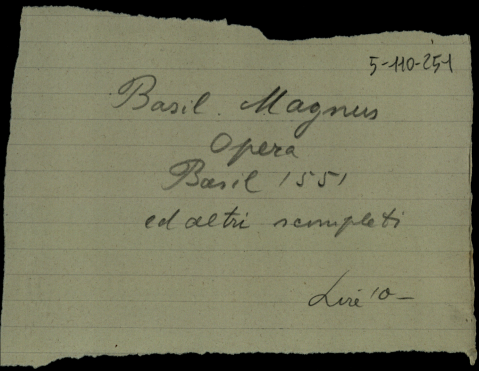 5-110-251
Basil. Magnus
Opera
Basil 1551
ed altri scompleti
Lire 10-